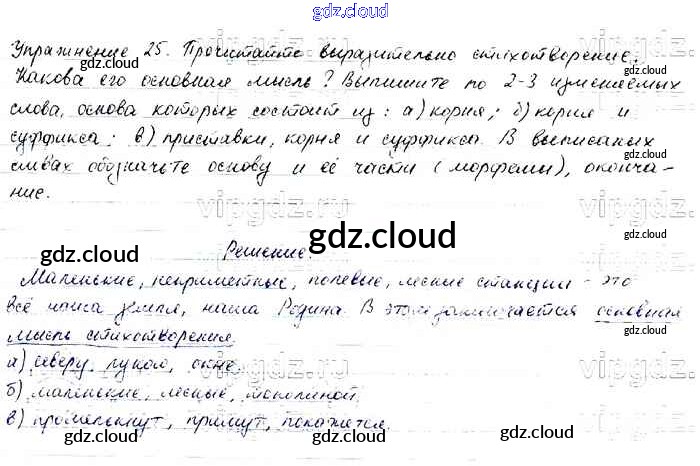 gdz.cloud
Упражнение 25. Прочитайте выразительно стихотворение.
Какова его основная мысль? Выпишите по 2-3 изменяемых
gdz.cloud
слова, основа которых состоит из: а) корня; б) корня и
суффикса; в) приставки, корня и суффикса. В выписаных
gdz.cloud
словах обозначьте основу и её части (морфемы), оконча-
ние.
vipgdz.ru
gdz.cloud
gdz.cloud
gdz.cloud
Решение.
Маленькие, неприметные, полевые, лесные станции - это
всё наша земля, наша Родина. В этом заключается основная
gdz.cloud
мысль стихотворения.
а) северу, лукал, окне.
gdz.cloud
б) маленькие, лесные,
gdz.cloud
в) промелькнут, примут, покажется.
gdz.cloud
gdz.cloud